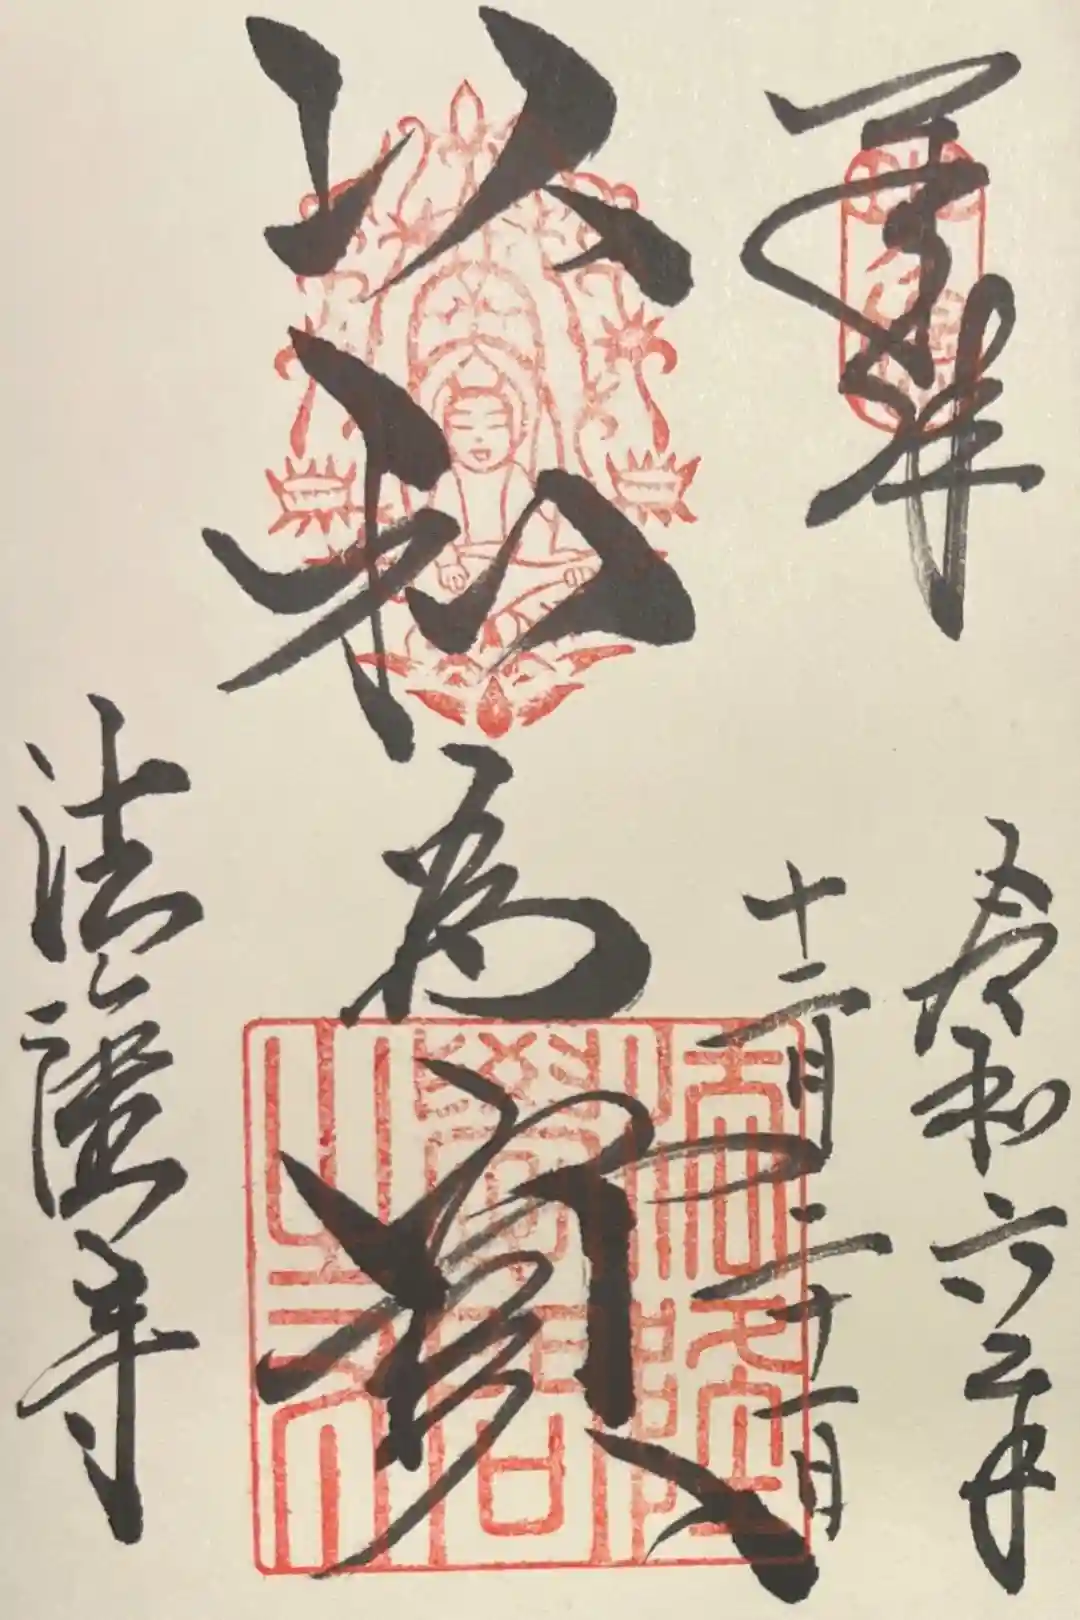 奉拝
令和六年
十二月二十一日
以和為貴
法隆寺